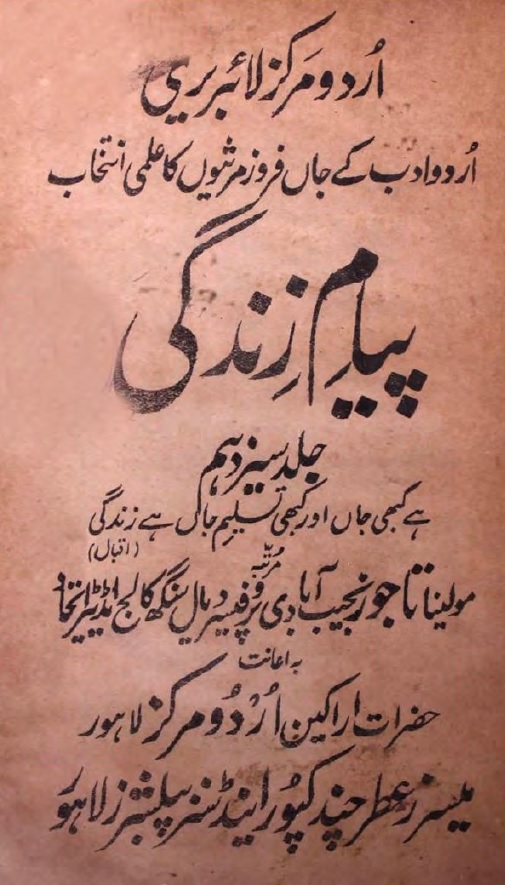 اُردو مرکز لائبریری
اُردو ادب کے جاں فروز مرثیوں کا علمی انتخاب
پیامِ زِندگی
جلد سیزدہم
ہے کبھی جاں اور کبھی تسلیمِ جاں ہے زندگی
(اقبال)
مرتبہ
مولینا تاجور نجیب آبادی پروفیسر دیال سنگھ کالج ایڈیٹر اتحاد
بہ اعانت
حضرات اراکین اُردُو مرکز لاہور
میسرز عطر چند کپور اینڈ سنز پبلشرز لاہور